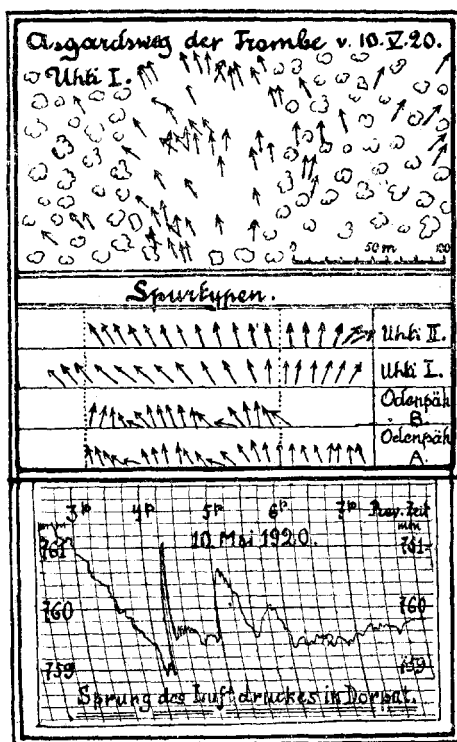 Asgardsweg der Trombe v. 10.V.20.
Uhti I.
0 50 m 100
Spurtypen.
Uhti II.
Uhti I.
Odenpäh B.
Odenpäh A.
3p 4p 5p 6p 7p Zeit
mm mm
10. Mai 1920.
761 761
760 760
759 759
Sprung des Luftdruckes in Dorpat.